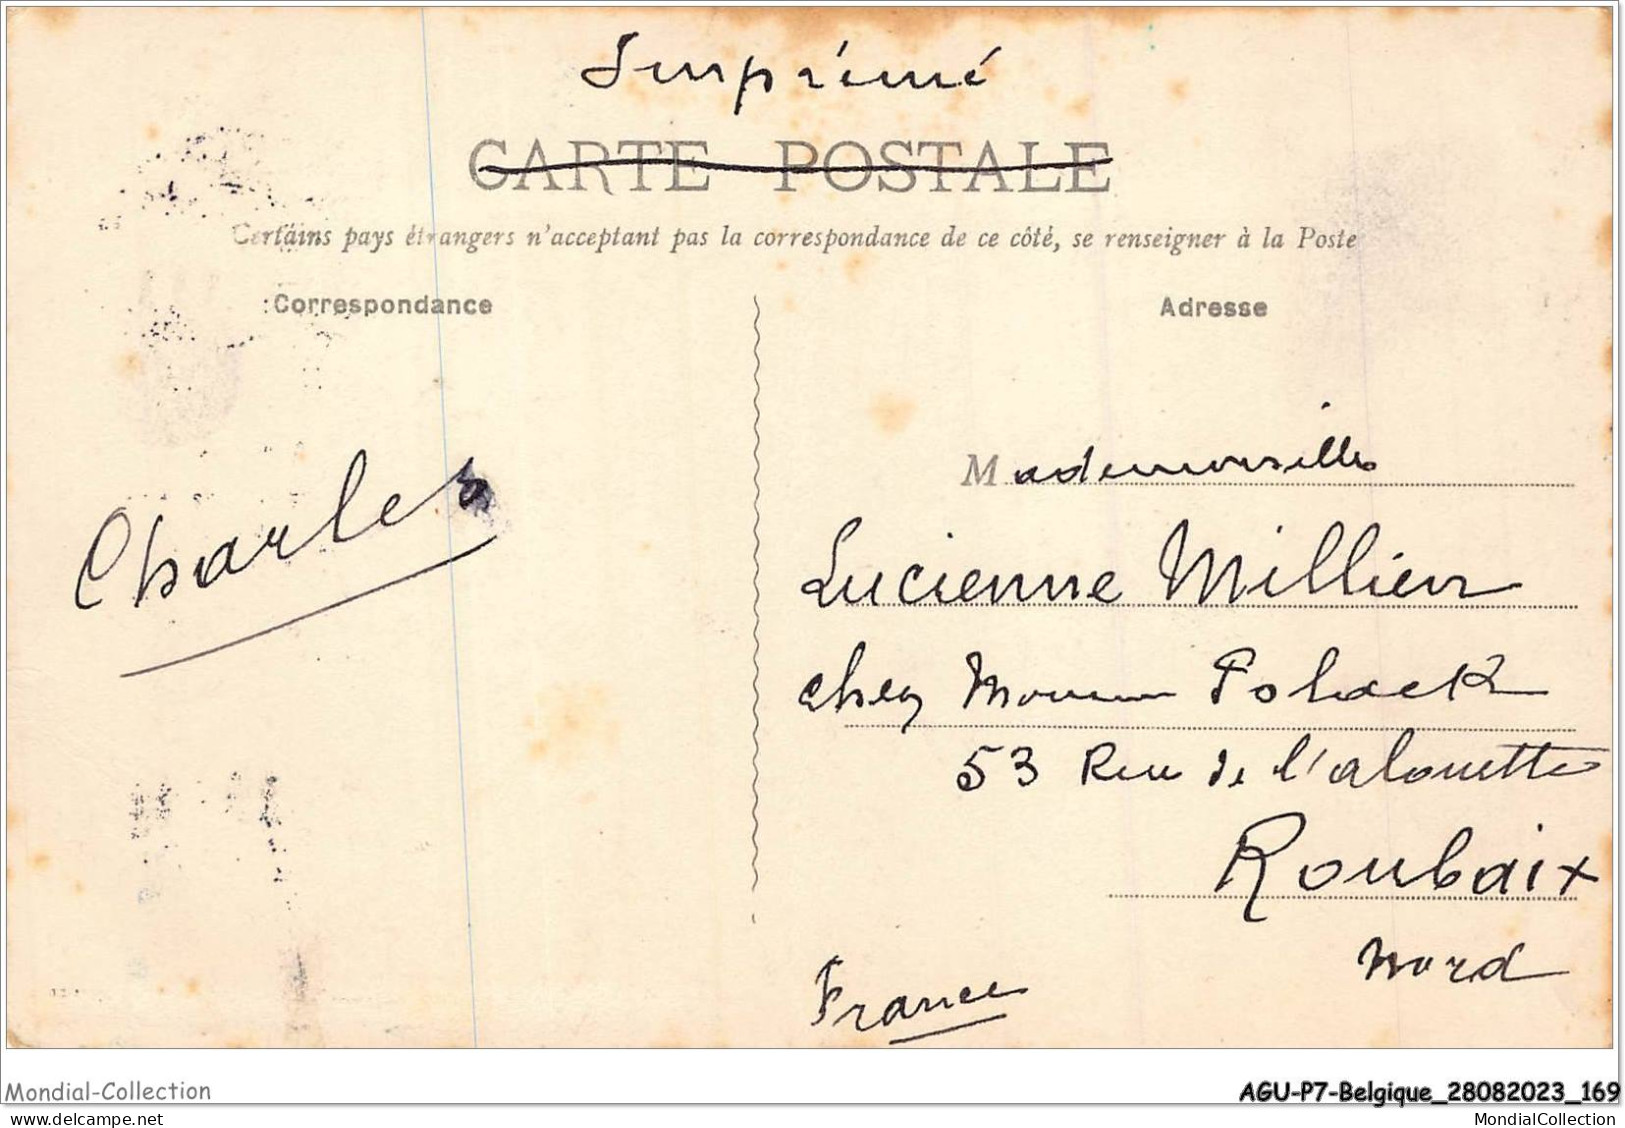 Imprimé
CARTE POSTALE
Certains pays étrangers n'acceptant pas la correspondance de ce côté, se renseigner à la Poste
Correspondance
Adresse
Charles
Mademoiselle
Lucienne Millien
chez Polack
53 Rue de l'alouette
Roubaix
Nord
France
Mondial-Collection
AGU-P7-Belgique_28082023_169
MondialCollection